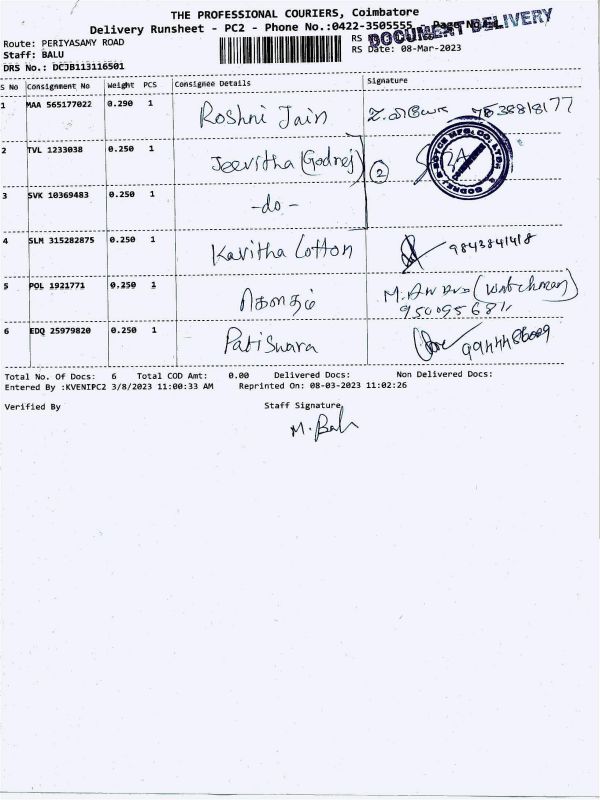 THE PROFESSIONAL COURIERS, Coimbatore
Delivery Runsheet - PC2 - Phone No.:0422-3505555 Page No.
DOCUMENT DELIVERY
Route: PERIYASAMY ROAD RS
Staff: BALU RS Date: 08-Mar-2023
DRS No.: DCJB113116501
S No Consignment No Weight PCS Consignee Details Signature
1 MAA 565177022 0.290 1 Roshni Jain
2 TVL 1233038 0.250 1 Jeevitha (Godrej) 2
GODREJ & BOYCE MFG. CO. LTD
3 SVK 10369483 0.250 1 -do-
4 SLM 315282875 0.250 1 Kavitha Cotton 9843841418
5 POL 1921771 0.250 1 கௌதம் M. (Watchman)
6 EDQ 25979820 0.250 1 Patiswara
Total No. Of Docs: 6 Total COD Amt: 0.00 Delivered Docs: Non Delivered Docs:
Entered By :KVENIPC2 3/8/2023 11:00:33 AM Reprinted On: 08-03-2023 11:02:26
Verified By Staff Signature
M. Balu